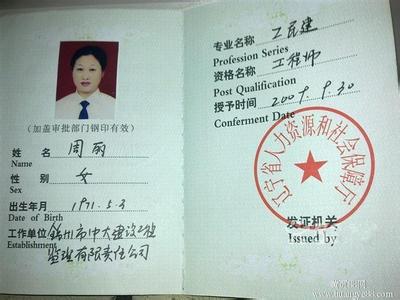 (加盖审批部门钢印有效)
姓名 周丽
Name
性别 女
Sex
出生年月 1971.5.3
Date of Birth
工作单位 锦州市中大建设工程
Establishment 监理有限责任公司
专业名称 工民建
Profession Series
资格名称 工程师
Post Qualification
授予时间 2009.9.30
Conferment Date
辽宁省人力资源和社会保障厅
发证机关
Issued by
www.huangye88.com